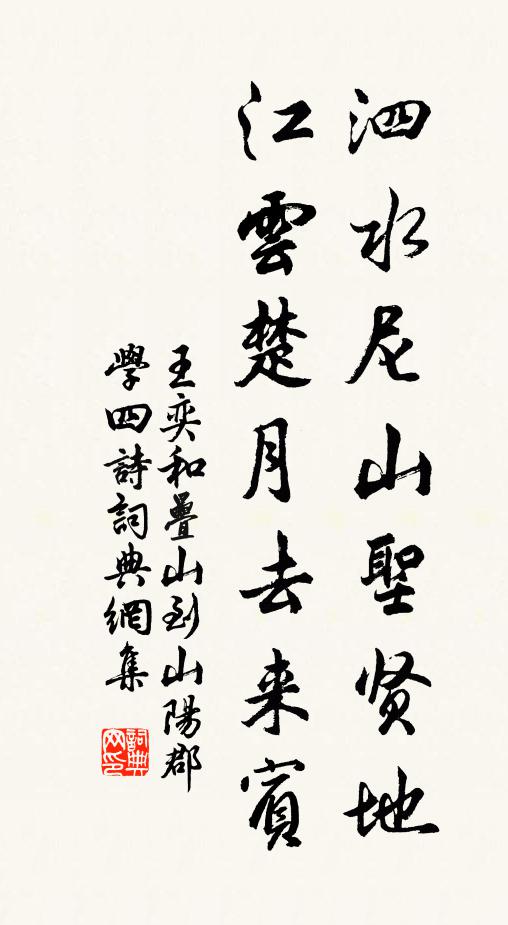 泗水尼山聖贤地
江雲楚月去来賓
王奕和疊山到山陽郡
學四詩詞典網集
詞典网印